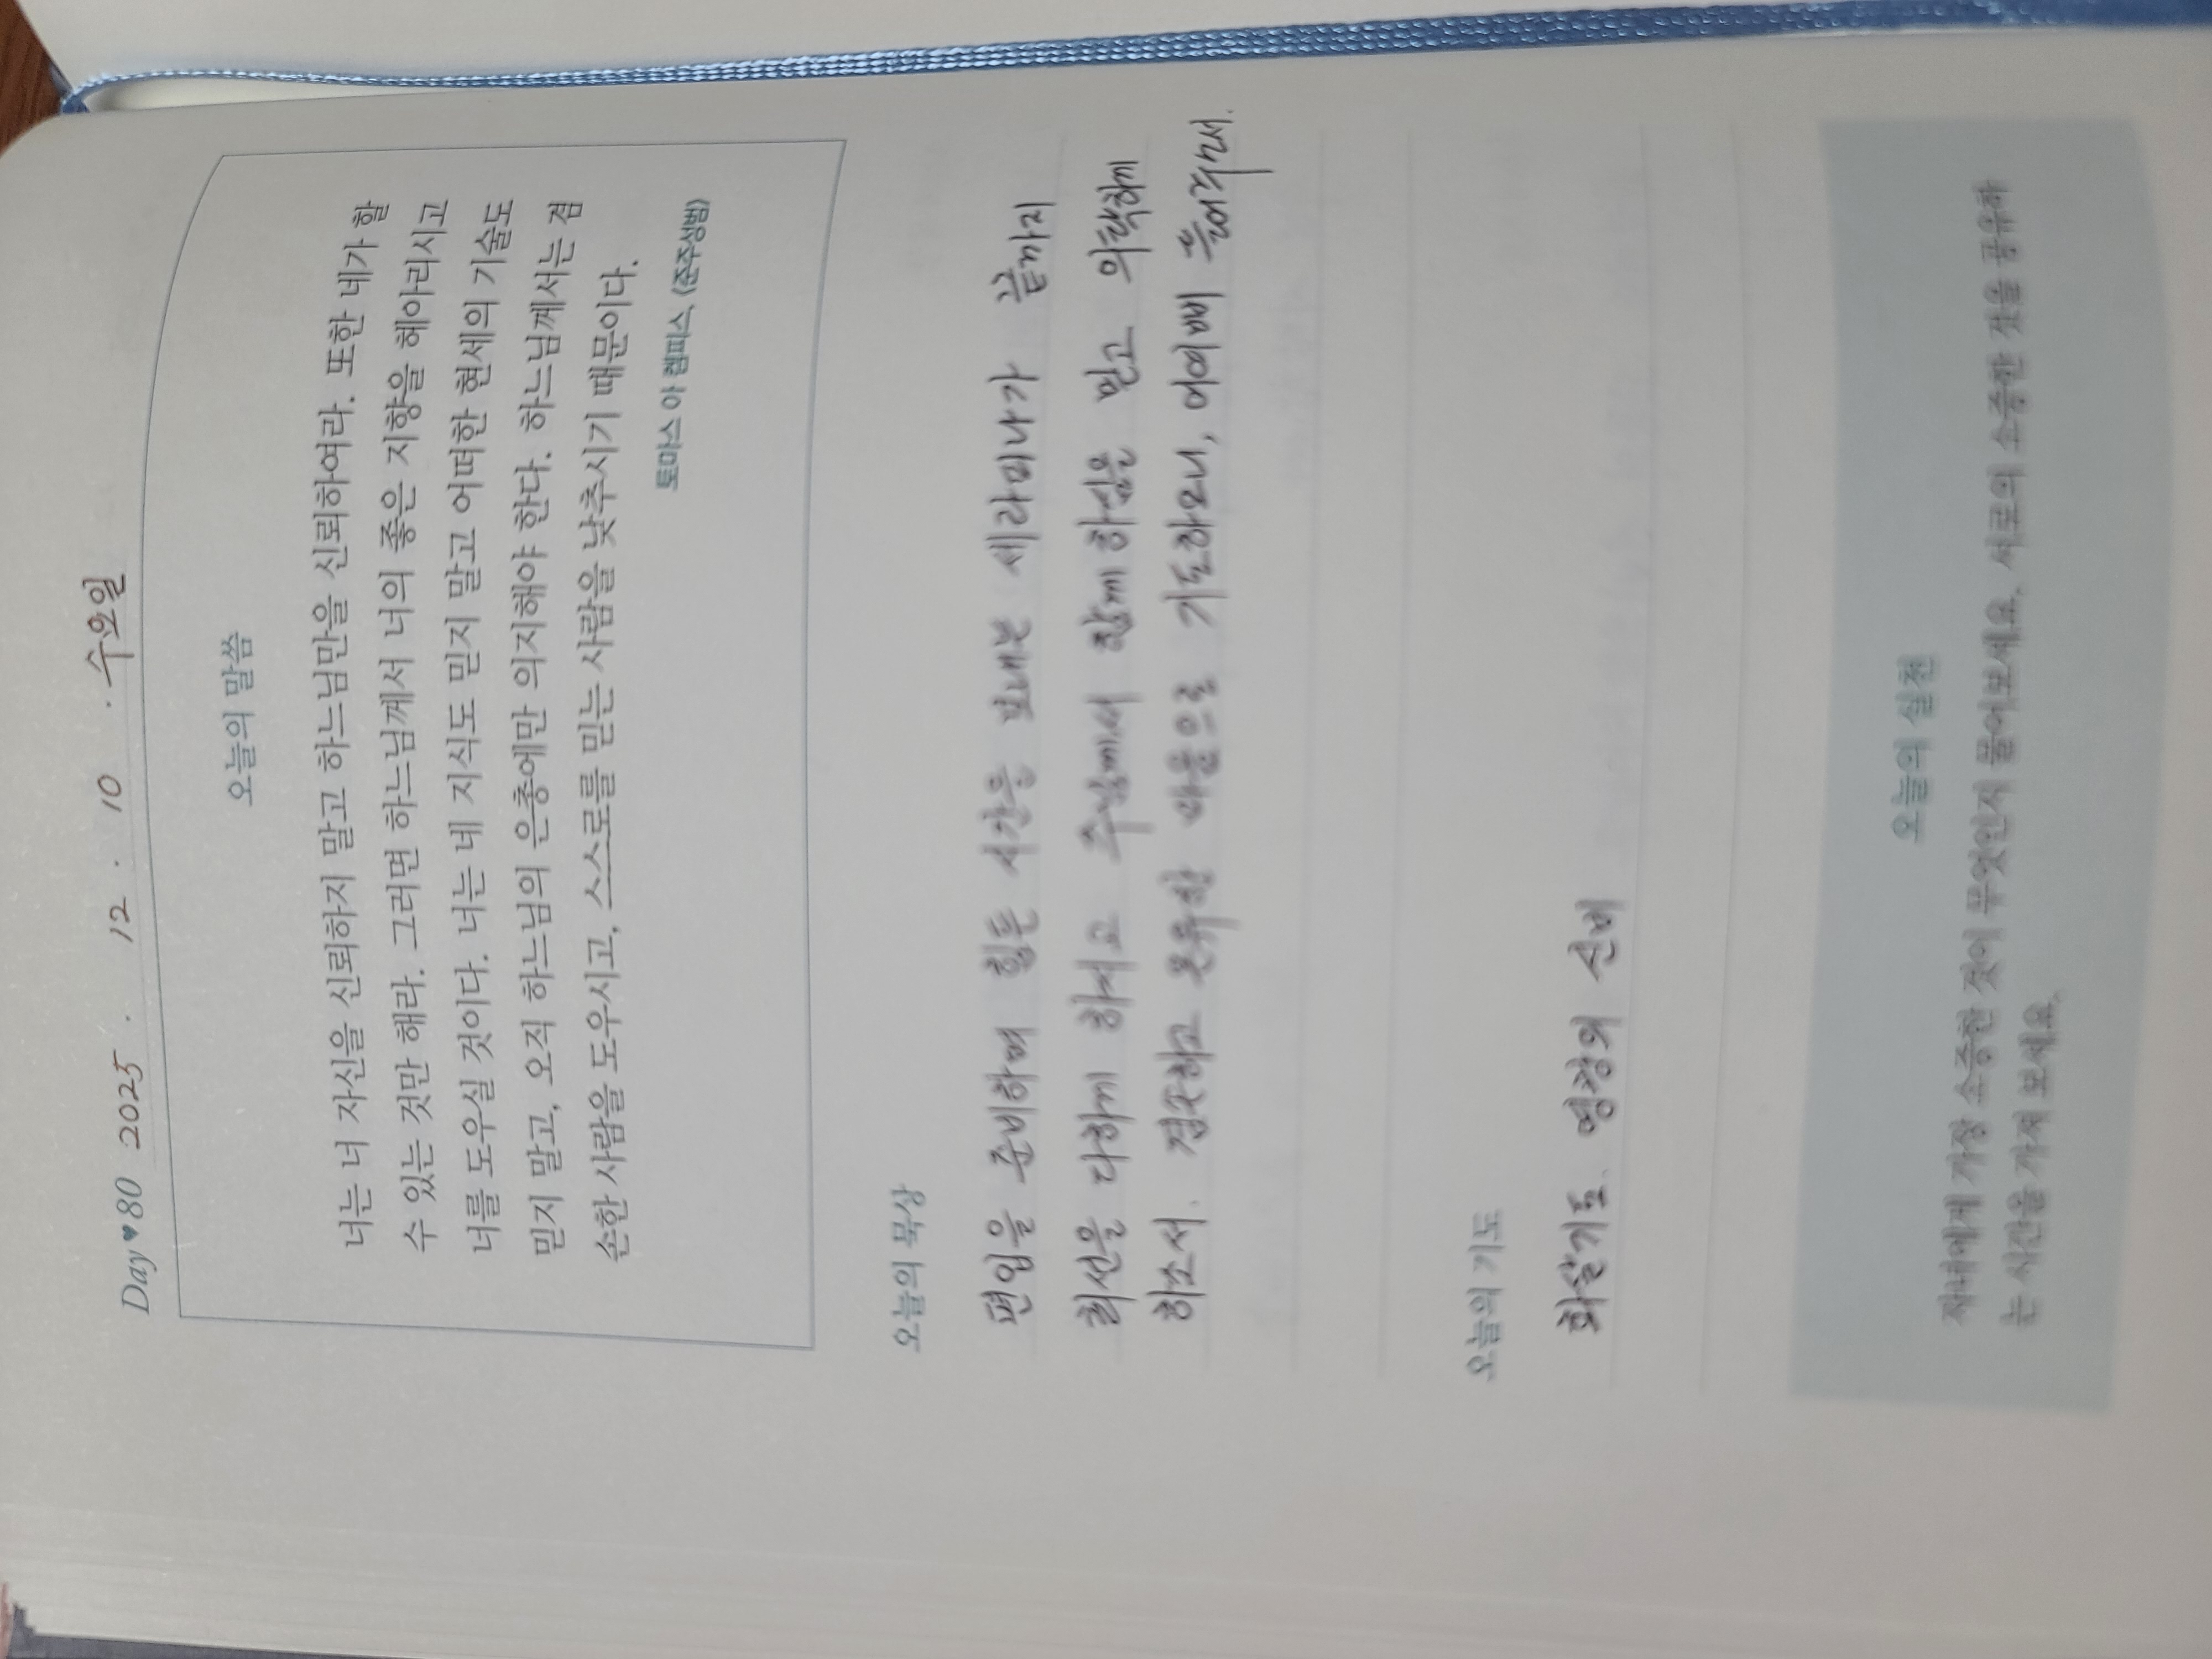 Day♥80 2025. 12. 10. 수요일
오늘의 말씀
너는 너 자신을 신뢰하지 말고 하느님만을 신뢰하여라. 또한 네가 할
수 있는 것만 해라. 그러면 하느님께서 너의 좋은 지향을 헤아리시고
너를 도우실 것이다. 너는 네 지식도 믿지 말고 어떠한 현세의 기술도
믿지 말고, 오직 하느님의 은총에만 의지해야 한다. 하느님께서는 겸
손한 사람을 도우시고, 스스로를 믿는 사람을 낮추시기 때문이다.
토마스 아 켐피스, 《준주성범》
오늘의 묵상
편입을 준비하며 힘든 시간을 보내는 세라피나가 끝까지
최선을 다하게 하시고 주님께서 함께 하심을 믿고 의탁하게
하소서. 겸손하고 온유한 마음으로 기도하오니, 어여삐 들어주소서.
오늘의 기도
화살기도. 영광의 신비
오늘의 실천
자녀에게 가장 소중한 것이 무엇인지 물어보세요. 서로의 소중한 것을 공유하
는 시간을 가져 보세요.